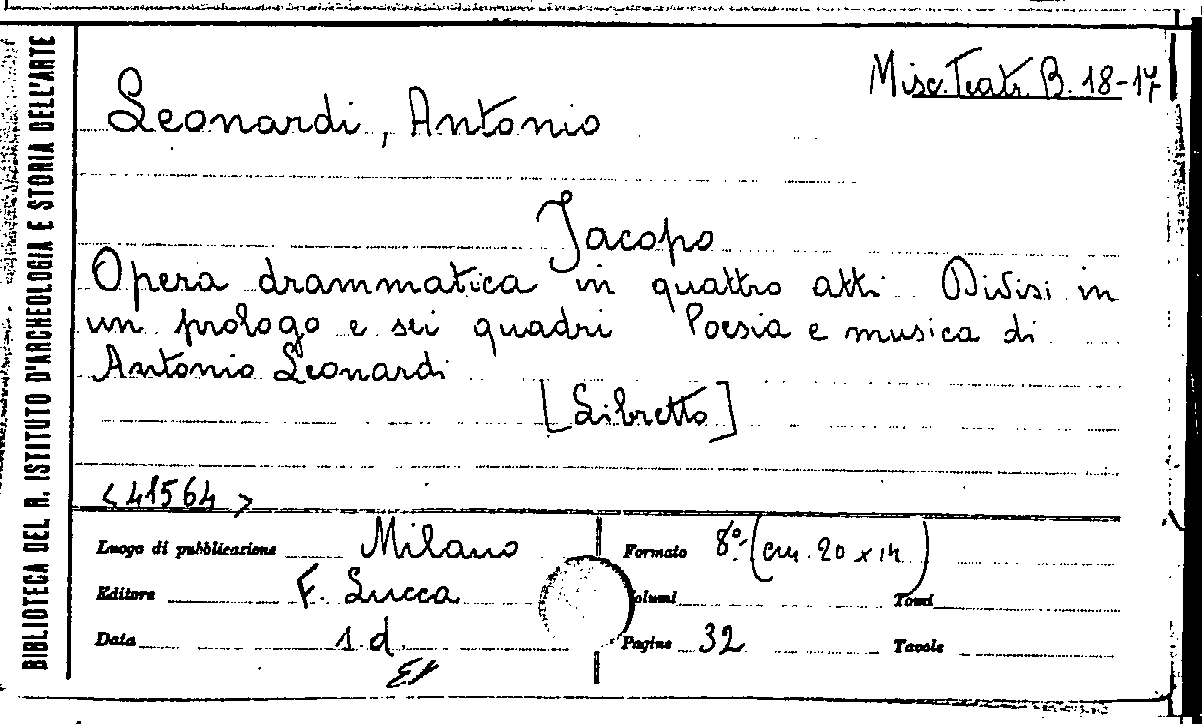 BIBLIOTECA DEL R. ISTITUTO D'ARCHEOLOGIA E STORIA DELL'ARTE
Misc. Teatr. B. 18-17
Leonardi, Antonio
Jacopo
Opera drammatica in quattro atti Divisi in
un prologo e sei quadri Poesia e musica di
Antonio Leonardi
[Libretto]
<41564>
Luogo di pubblicazione Milano Formato 8º (cm. 20 x 14)
Editore F. Lucca Volumi Tomi
Data s. d. Pagine 32 Tavole